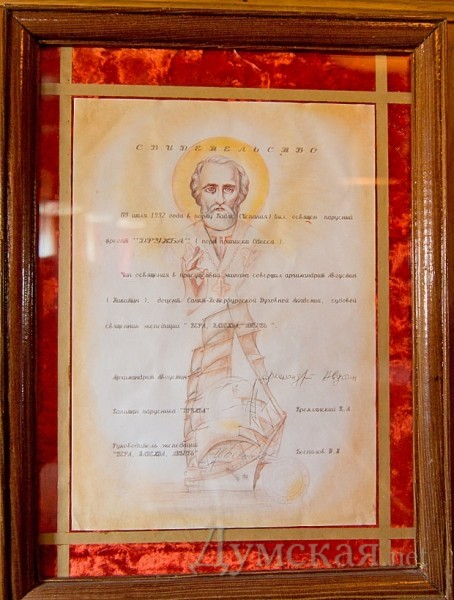 СВИДЕТЕЛЬСТВО
09 июля 1997 года в порту Кадис (Испания) был освящен парусный
фрегат "ДРУЖБА" ( порт приписки Одесса ).
Чин освящения в присутствии экипажа совершил архимандрит Августин
( Никитин ), доцент Санкт-Петербургской Духовной Академии, судовой
священник экспедиции " ВЕРА, НАДЕЖДА, ЛЮБОВЬ ".
Архимандрит Августин
Капитан парусника "ДРУЖБА" Кремлянский В.А
Руководитель экспедиции
"ВЕРА, НАДЕЖДА, ЛЮБОВЬ" В.Я
Думская.net